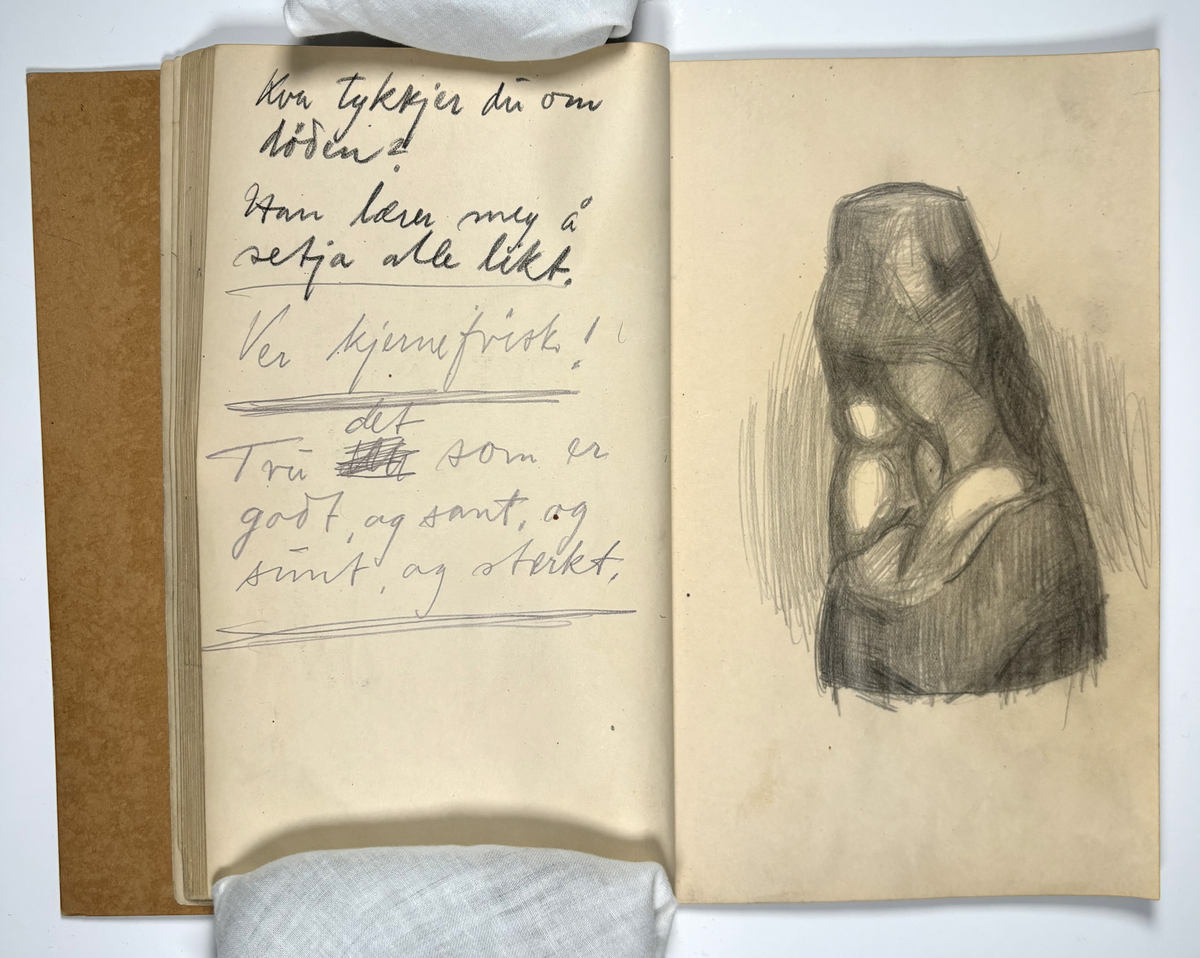 Kva tykkjer du om
døden?
Han lærer meg å
setja alle likt.
Ver kjernefrisk!
det
Tru som er
godt, og sant, og
sunt, og sterkt.